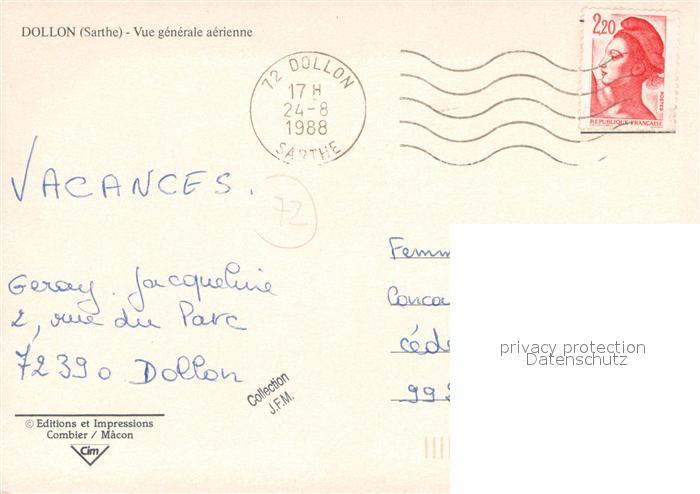 DOLLON (Sarthe) - Vue générale aérienne
72 DOLLON
17 H
24-8
1988
SARTHE
2,20
POSTES
REPUBLIQUE FRANÇAISE
VACANCES.
72
Geray Jacqueline
2, rue du Parc
72390 Dollon
Collection
J.F.M.
© Editions et Impressions
Combier / Mâcon
Cim
Femm
Conco
céde
99
privacy protection
Datenschutz